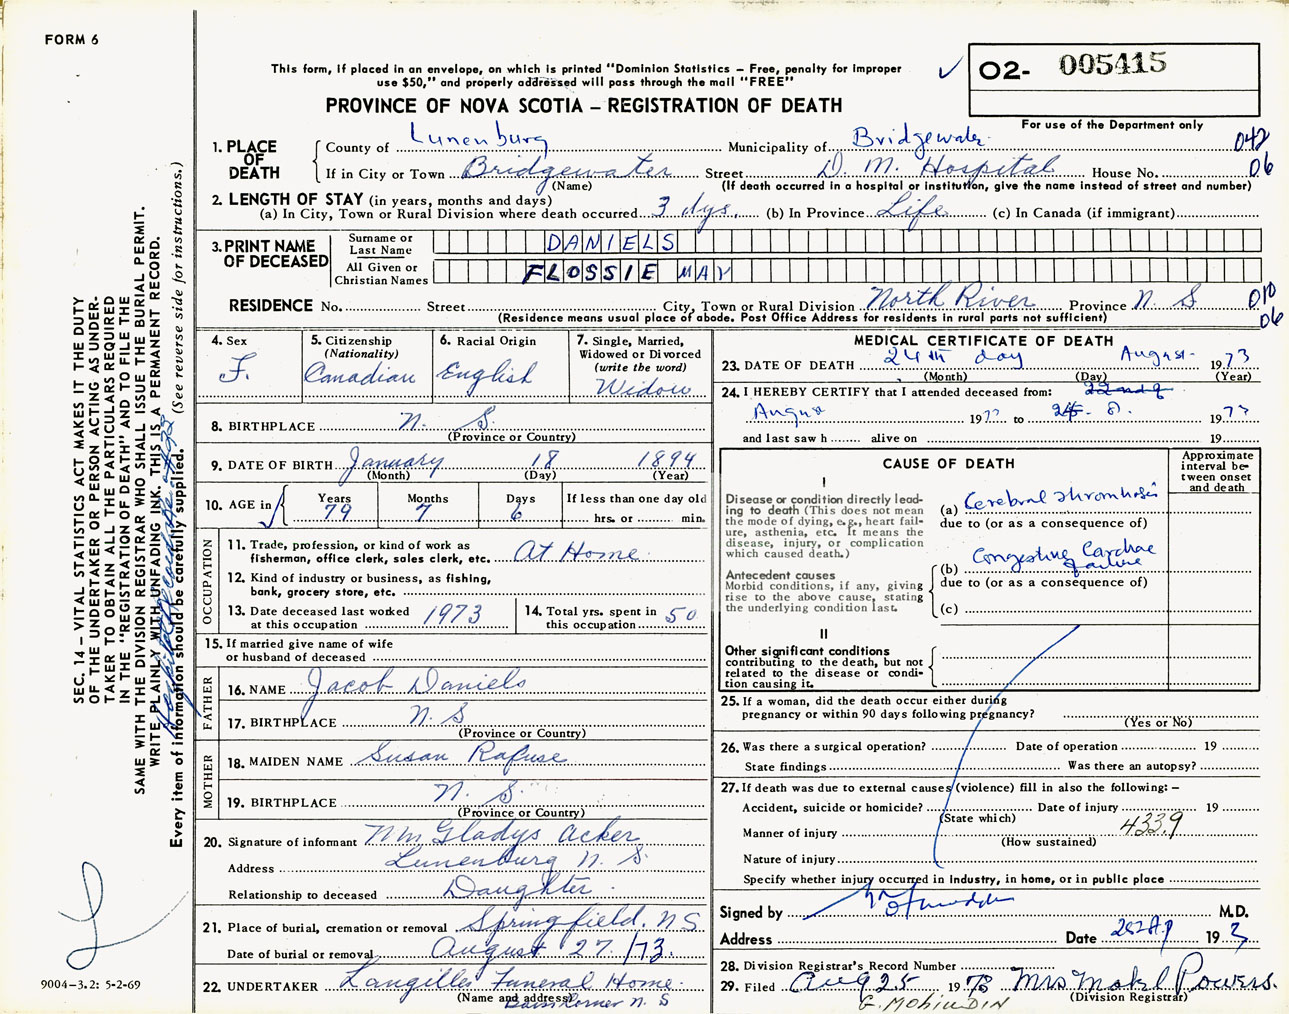 FORM 6
This form, if placed in an envelope, on which is printed "Dominion Statistics – Free, penalty for improper
use $50," and properly addressed will pass through the mail "FREE"
O2- 005415
PROVINCE OF NOVA SCOTIA – REGISTRATION OF DEATH
For use of the Department only
1. PLACE OF DEATH
County of Lunenburg Municipality of Bridgewater 042
If in City or Town Bridgewater Street D. M. Hospital House No. 06
(Name) (If death occurred in a hospital or institution, give the name instead of street and number)
2. LENGTH OF STAY (in years, months and days)
(a) In City, Town or Rural Division where death occurred 3 dys. (b) In Province Life (c) In Canada (if immigrant)
3. PRINT NAME OF DECEASED
Surname or Last Name DANIELS
All Given or Christian Names FLOSSIE MAY
RESIDENCE No. Street City, Town or Rural Division North River Province N. S 010
(Residence means usual place of abode. Post Office Address for residents in rural parts not sufficient) 06
4. Sex F.
5. Citizenship (Nationality) Canadian
6. Racial Origin English
7. Single, Married, Widowed or Divorced (write the word) Widow
8. BIRTHPLACE N. S.
(Province or Country)
9. DATE OF BIRTH January 18 1894
(Month) (Day) (Year)
10. AGE in Years 79 Months 7 Days 6 If less than one day old hrs. or min.
OCCUPATION
11. Trade, profession, or kind of work as
fisherman, office clerk, sales clerk, etc. At Home
12. Kind of industry or business, as fishing,
bank, grocery store, etc.
13. Date deceased last worked at this occupation 1973
14. Total yrs. spent in this occupation 50
15. If married give name of wife
or husband of deceased
FATHER
16. NAME Jacob Daniels
17. BIRTHPLACE N. S
(Province or Country)
MOTHER
18. MAIDEN NAME Susan Rafuse
19. BIRTHPLACE N. S
(Province or Country)
20. Signature of informant Gladys Acker
Address Lunenburg N. S.
Relationship to deceased Daughter
21. Place of burial, cremation or removal Springfield, N S
Date of burial or removal August 27, /73.
22. UNDERTAKER Langilles Funeral Home
(Name and address) N. S
MEDICAL CERTIFICATE OF DEATH
23. DATE OF DEATH 24th day August 1973
(Month) (Day) (Year)
24. I HEREBY CERTIFY that I attended deceased from:
19 to 19
and last saw h alive on 19
CAUSE OF DEATH
Approximate interval between onset and death
I
Disease or condition directly lead-
ing to death (This does not mean
the mode of dying, e.g., heart fail-
ure, asthenia, etc. It means the
disease, injury, or complication
which caused death.)
(a) Cerebral thrombosis
due to (or as a consequence of)
Antecedent causes
Morbid conditions, if any, giving
rise to the above cause, stating
the underlying condition last.
(b) Congestive Cardiac failure
due to (or as a consequence of)
(c)
II
Other significant conditions
contributing to the death, but not
related to the disease or condi-
tion causing it.
25. If a woman, did the death occur either during
pregnancy or within 90 days following pregnancy?
(Yes or No)
26. Was there a surgical operation? Date of operation 19
State findings Was there an autopsy?
27. If death was due to external causes (violence) fill in also the following: –
Accident, suicide or homicide? Date of injury 19
(State which)
Manner of injury 433.9
(How sustained)
Nature of injury
Specify whether injury occurred in Industry, in home, or in public place
Signed by M.D.
Address Date 19
28. Division Registrar's Record Number
29. Filed Aug 25 1973 Mrs Mabel Powers.
(Division Registrar)
G. MOHIUDIN
SEC. 14 – VITAL STATISTICS ACT MAKES IT THE DUTY
OF THE UNDERTAKER OR PERSON ACTING AS UNDER-
TAKER TO OBTAIN ALL THE PARTICULARS REQUIRED
IN THE "REGISTRATION OF DEATH" AND TO FILE THE
SAME WITH THE DIVISION REGISTRAR WHO SHALL ISSUE THE BURIAL PERMIT.
WRITE PLAINLY WITH UNFADING INK. THIS IS A PERMANENT RECORD.
Every item of information should be carefully supplied. (See reverse side for instructions.)
9004–3.2: 5-2-69